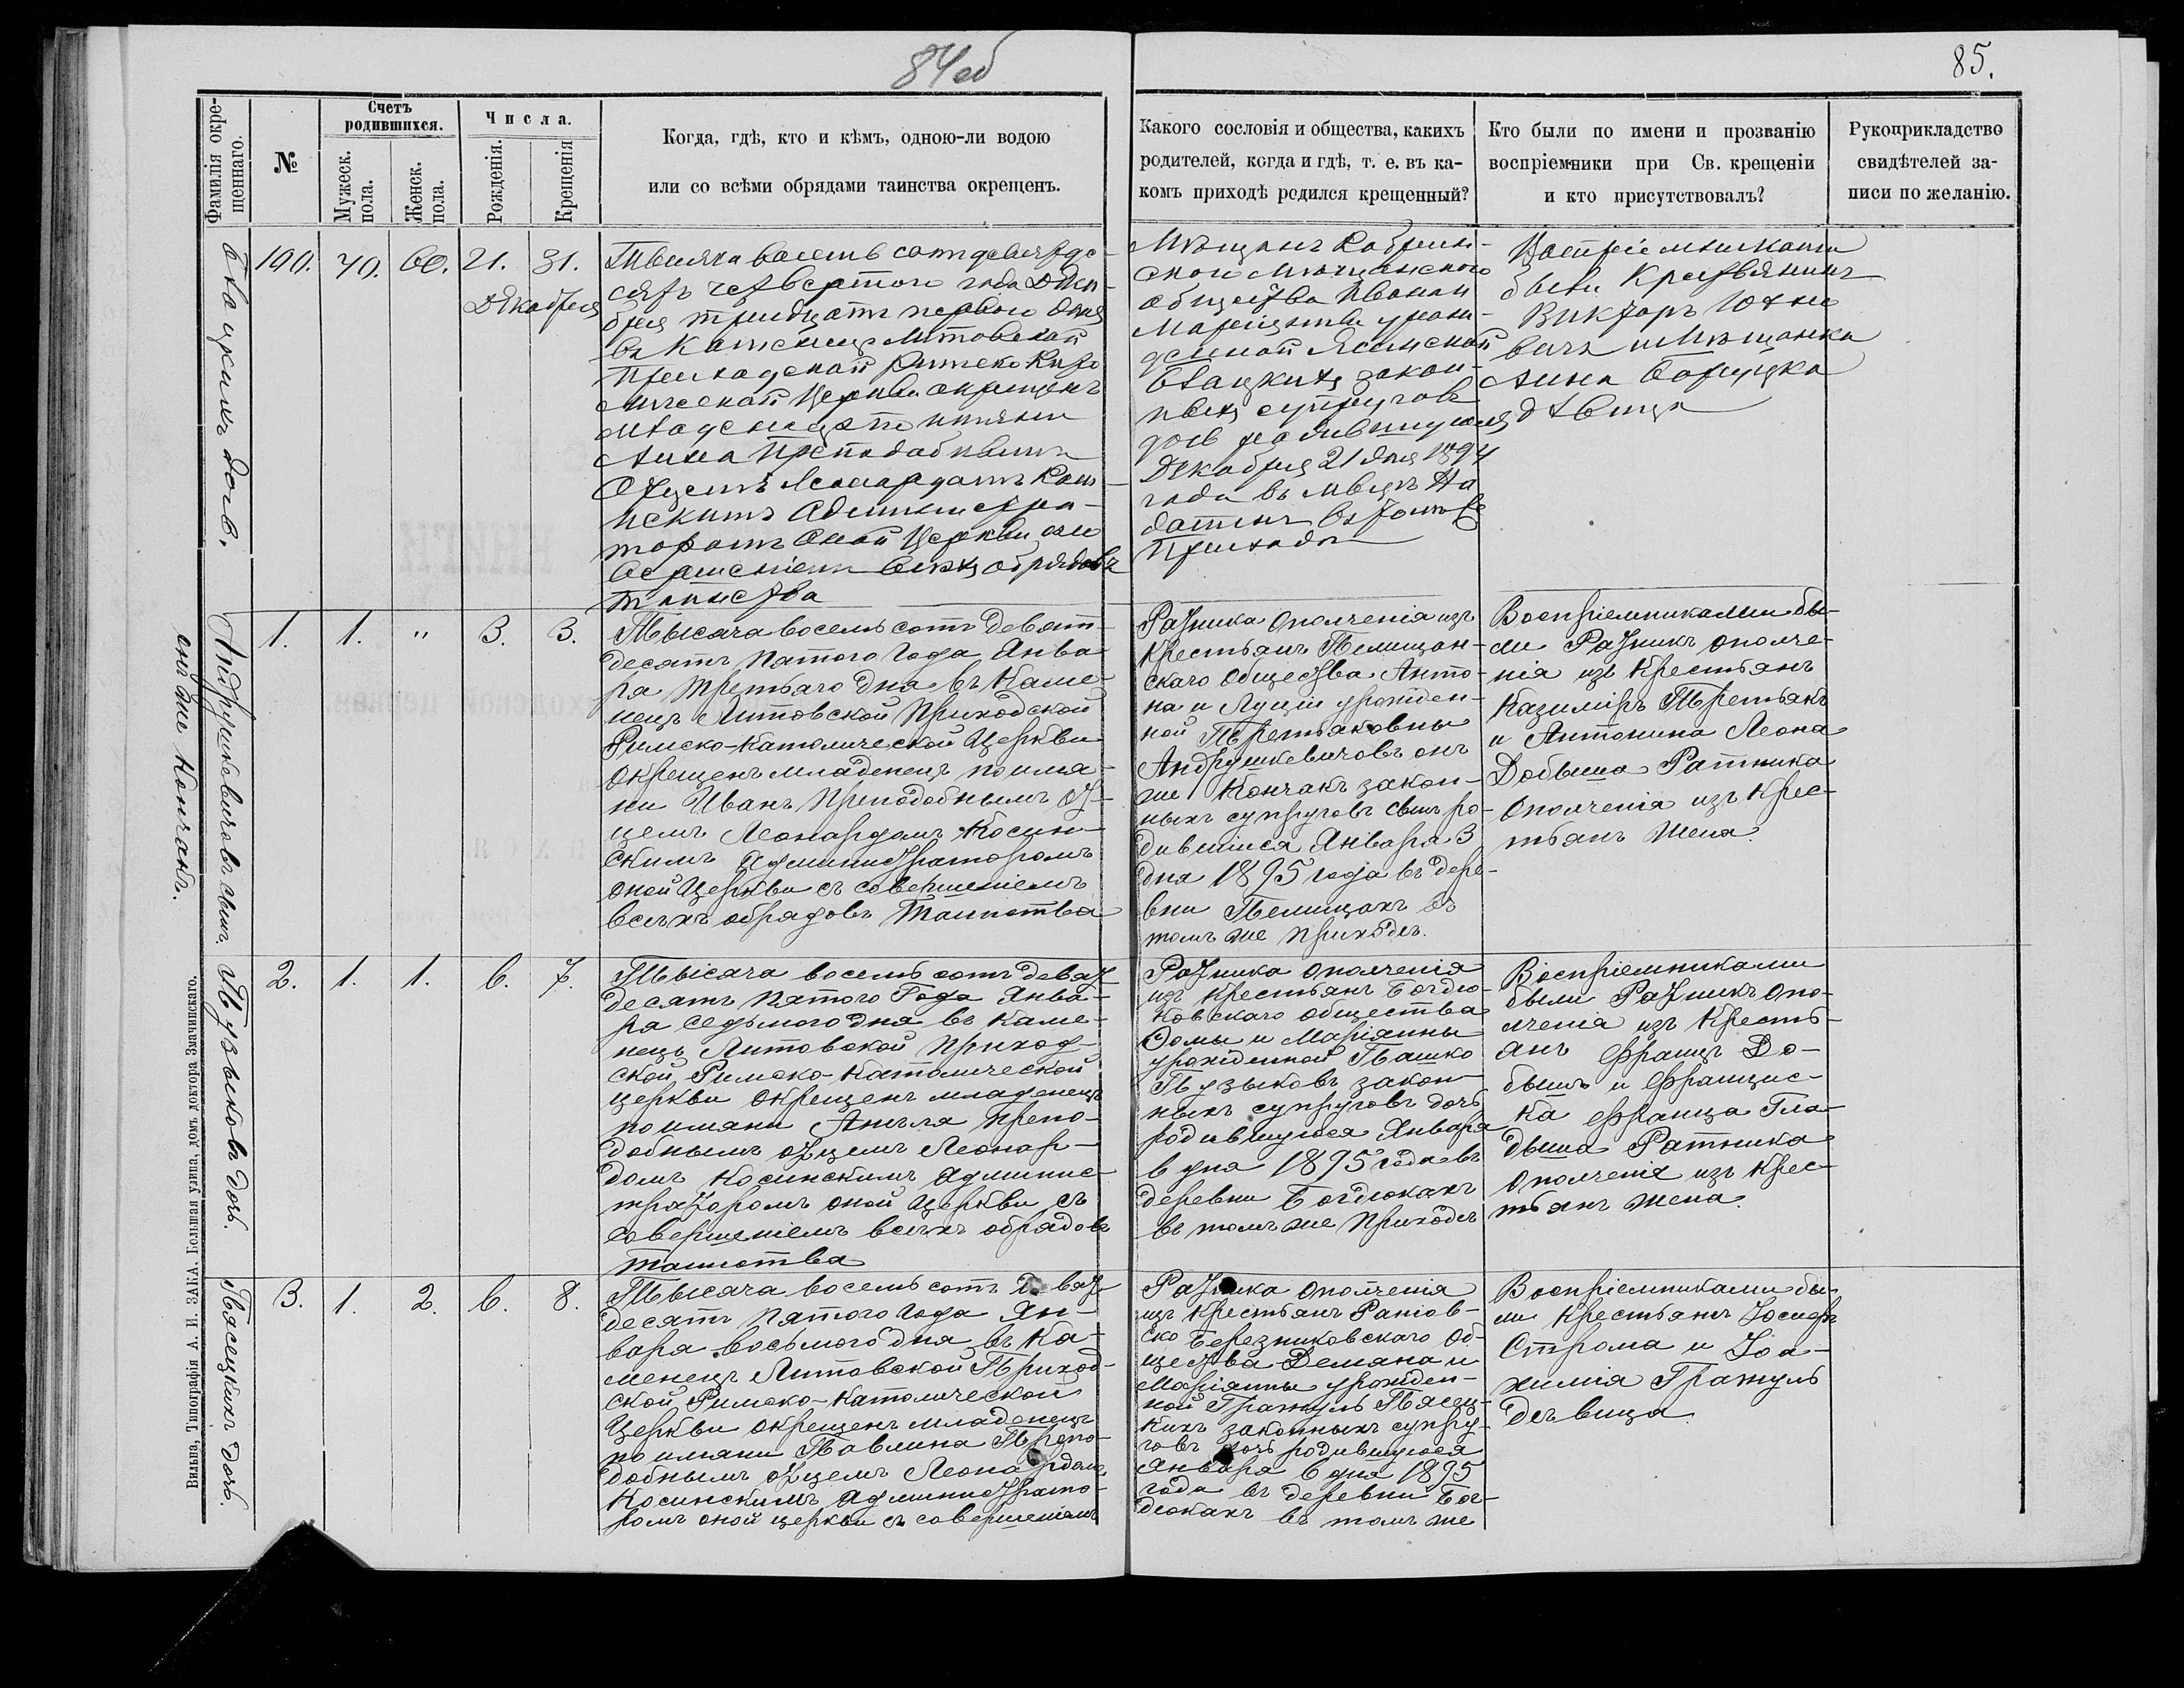 84об
85.
Фамилія окре-
щеннаго.
№
Счетъ
родившихся.
Мужеск.
пола.
Женск.
пола.
Числа.
Рожденія.
Крещенія
Когда, гдѣ, кто и кѣмъ, одною-ли водою
или со всѣми обрядами таинства окрещенъ.
Какого сословія и общества, какихъ
родителей, когда и гдѣ, т. е. въ ка-
комъ приходѣ родился крещенный?
Кто были по имени и прозванію
воспріемники при Св. крещеніи
и кто присутствовалъ?
Рукоприкладство
свидѣтелей за-
писи по желанію.
дочь.
190. 70. 60. 21. 31.
Декабря
Тысяча восемь сотъ девятьде-
сятъ четвертого года Дека-
бря тридцать первого дня
въ Каменецъ Литовской
Приходской Римско Като
лической Церкви окрещенъ
младенецъ по имяни
Анна Преподобнымъ
Отцемъ Леонардомъ Кош-
Администра-
торомъ оной Церкви съ
всѣхъ обрядовъ
таинства
Мѣщанъ Кобрин-
ского Мѣщанского
общества Ивана и
урож-
денной
закон-
ныхъ супруговъ
дочь родившуюся
Декабря 21 дня 1894
года въ
въ томъ же
Приходѣ
Воспріемниками
были Крестьянинъ
Викторъ Юхно
вичъ и Мѣщанка
Анна
дѣвица
Андрушкевичовъ сынъ.
онъ же Кончакъ.
1. 1. " 3. 3.
Тысяча восемь сотъ девять-
десятъ пятого года Янва-
ря третьяго дня въ Каме-
нецъ Литовской Приходской
Римско-Католической Церкви
окрещенъ младенецъ по имя-
ни Иванъ Преподобнымъ От-
цемъ Леонардомъ Косин-
скимъ Администраторомъ
оной Церкви съ совершеніемъ
всѣхъ обрядовъ Таинства
Ратника ополченія изъ
Крестьянъ Пелищан-
скаго Общества Анто-
на и Луціи урожден-
ной Третьяковны
Андрушкевичовъ онъ
же Кончакъ закон-
ныхъ супруговъ сынъ ро-
дившійся Января 3
дня 1895 года въ дере-
вни Пелищахъ въ
томъ же приходѣ.
Воспріемниками бы-
ли Ратникъ ополче-
нія изъ Крестьянъ
Казимиръ Третьякъ
и Антонина Леона
Добыша Ратника
ополченія изъ Крес-
тьянъ жена.
Пузыковъ дочь.
2. 1. 1. 6. 7.
Тысяча восемь сотъ девят
десятъ пятого Года Янва-
ря седьмого дня въ Каме-
нецъ Литовской Приход-
ской Римско-Католической
Церкви окрещенъ младенецъ
по имяни Анѣля Препо-
добнымъ отцемъ Леонар-
домъ Косинскимъ Админис-
траторомъ оной Церкви съ
совершеніемъ всѣхъ обрядовъ
таинства
Ратника ополченія
изъ Крестьянъ Богдю-
ковскаго общества
Ѳомы и Маріянны
урожденной Пашко
Пузыковъ закон-
ныхъ супруговъ дочь
родившуюся Января
6 дня 1895 года въ
деревни Богдюкахъ
въ томъ же Приходѣ
Воспріемниками
были Ратникъ опо-
лченія изъ Кресть-
янъ Францъ До-
бышъ и Францис-
ка Франца Гла-
дыша Ратника
ополченія изъ Крес-
тьянъ жена.
Пясецкихъ дочь.
3. 1. 2. 6. 8.
Тысяча восемь сотъ девят
десятъ Пятого Года Ян-
варя восьмого дня въ Ка-
менецъ Литовской Приход-
ской Римско-Католической
Церкви окрещенъ младенецъ
по имяни Павлина Препо-
добнымъ отцемъ Леонардомъ
Косинскимъ Администрато-
ромъ оной церкви съ совершеніемъ
Ратника ополченія
изъ Крестьянъ
Березниковскаго Об-
щества Демяна и
Маріянны урожден-
ной Гражуль Пясец-
кихъ законныхъ супру-
говъ дочь родившуюся
Января 6 дня 1895
года въ деревни Бог-
дюкахъ въ томъ же
Воспріемниками бы-
ли Крестьянъ Іосифъ
Строма и Іоа-
химія Гражуль
дѣвица
Вильна, Типографія А. И. ЗАКА, Большая улица, домъ доктора Змачинскаго.